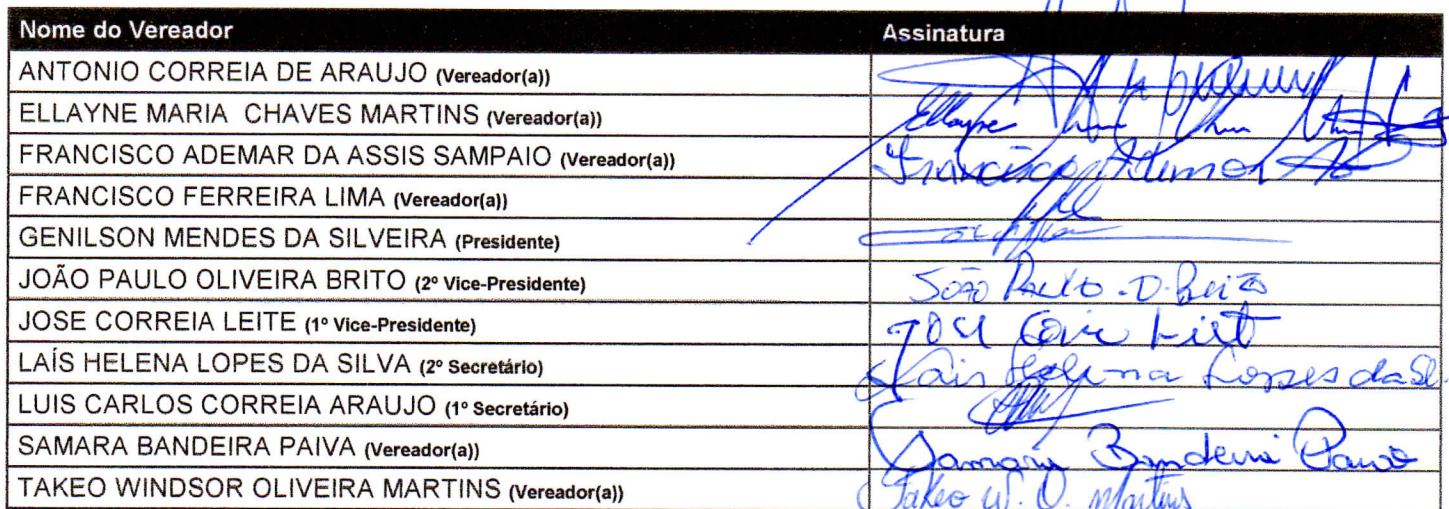 Nome do Vereador Assinatura
ANTONIO CORREIA DE ARAUJO (Vereador(a))
ELLAYNE MARIA CHAVES MARTINS (Vereador(a)) Ellayne
FRANCISCO ADEMAR DA ASSIS SAMPAIO (Vereador(a)) Francisco Ademar
FRANCISCO FERREIRA LIMA (Vereador(a))
GENILSON MENDES DA SILVEIRA (Presidente)
JOÃO PAULO OLIVEIRA BRITO (2º Vice-Presidente) João Paulo .O. Brito
JOSE CORREIA LEITE (1º Vice-Presidente)
LAÍS HELENA LOPES DA SILVA (2º Secretário) Lais Helena Lopes da Sl.
LUIS CARLOS CORREIA ARAUJO (1º Secretário)
SAMARA BANDEIRA PAIVA (Vereador(a)) Samara Bandeira Paiva
TAKEO WINDSOR OLIVEIRA MARTINS (Vereador(a)) Takeo W. O. Martins